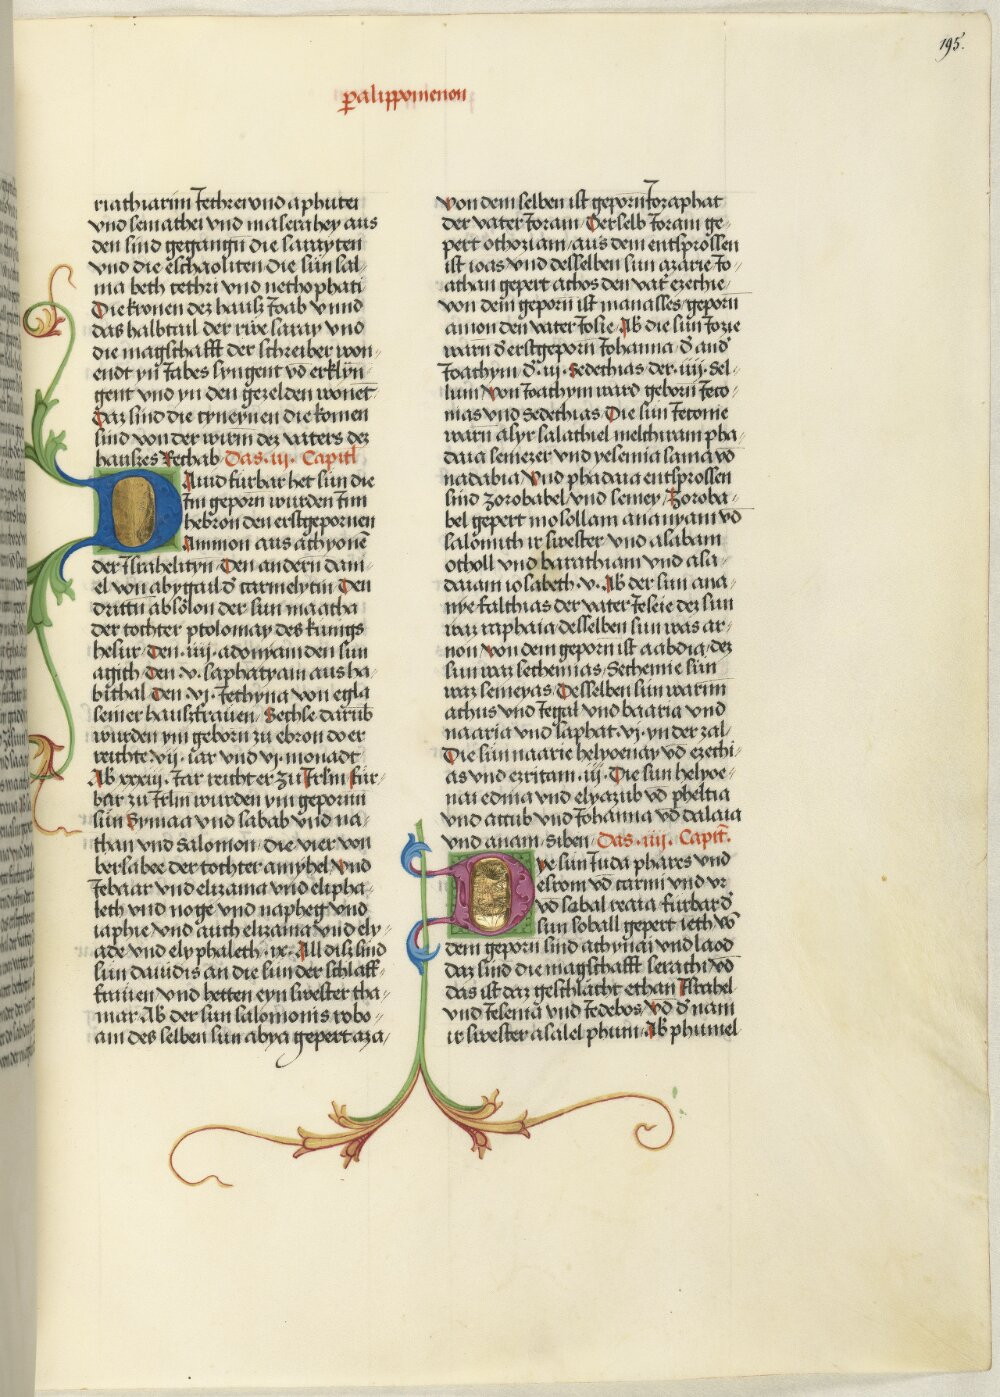 195.
palippomenon
riathiarim Jethrei vnd aphutei
vnd semathei vnd maserahey aus
den sind gegangñ die sarayten
vnd die eschaoliten Die sün sal⸗
ma beth tethri vnd nethophati
Die kronen dez hausz Joab vnnd
das halbtail der rüe saray vnd
die magschafft der schreiber won⸗
endt yn Jabes syngent vd erklyn⸗
gent vnd yn den gezelden wonet
Daz sind die cyneynen die komen
sind von der wirm dez vaters dez
hauszes Rechab Das .iii. Capitl
Auid fürbar het sun die
Im geporn wurden Im
hebron den erstgepornen
Ammon aus achyonē
der Israhelityn Den andern dani⸗
el von abygail d̄ carmelytin Den
dritñ absolon der sun maacha
der tochter ptolomay des künigs
hesur Den .iiii. adoniam den sun
agith Den .v. saphatyam aus ha⸗
bithal Den .vi. Jethyna von egla
seiner hauszfrauen Sechse darūb
wurden ym geborn zu ebron do er
reichte .vii. iar vnd vi. monadt
Ab xxxiii. Jar reicht er zu Jrl̄m für⸗
bar zu Jrl̄m wurden ym geporññ
sün Symaa vnd sabab vnd na⸗
than vnd salomon die vier von
bersabee der tochter amyhel vnd
Jebaar vnd elizama vnd elipha⸗
leth vnd noge vnd napheg vnd
iaphie vnd auch elizama vnd ely⸗
ade vnd elyphaleth .ix. All disz sind
sün dauidis an die sün der schlaff⸗
frauen vnd hetten eyn swester tha⸗
mar Ab der sun salomonis robo⸗
am des selben sun abya gepert aza⸗
von dem selben ist geporn Jozaphat
der vater Joram Derselb Joram ge⸗
pert othoziam aus dem entsprossen
ist ioas vnd desselben sun azarie Jo⸗
athan gepert athos den vat̄ ezechie
von dem geporn ist manasses geporn
amon den vater Josie Ab die sün Jozie
warn d̄ erstgeporn Johanna d̄ and̄
Joachym d̄ .iii. Sedechias der .iiii. Sel⸗
lum Von Joachym ward geborn Jeco⸗
nias vnd Sedechias Die sün Jeconie
warn asyr salathiel melchiram pha⸗
daia semezer vnd yesemia sama vō
nadabia Vnd phadaia entsprossen
sind zorobabel vnd semey Zoroba⸗
bel gepert mosollam ananyam vd
salomith ir swester vnd asabam
otholl vnd barathiam vnd asa⸗
daiam iosabeth .v. Ab der sun ana⸗
nye falthias der vater Jeseie dez sun
waz raphaia desselben sun was ar⸗
non von dem geporn ist aabdia dez
sun waz sechennias Sechenie sün
waz semeyas Desselben sün warnn
athus vnd Jegal vnd baaria vnd
naaria vnd saphat .vi. yn der zal
Die sün naarie helyoenay vd ezechi⸗
as vnd ezricam .iii. Die sun helyoe⸗
nai eduia vnd elyazub vd pheltia
vnd accub vnd Johanna vd dalaia
vnd anani siben Das .iiii. Capit̄.
ye sun Juda phares vnd
esrom vd carmi vnd vr
vd sobal reaia fürbar d̄
sun soball gepert ieth vō
dem geporn sind achymai vnd laod
daz sind die magschafft serachi vō
das ist daz geschlacht ethan Israhel
vnd Jesema vnd Jedebos vd d̄ nam
ir swester asalel phuni Ab phuniel